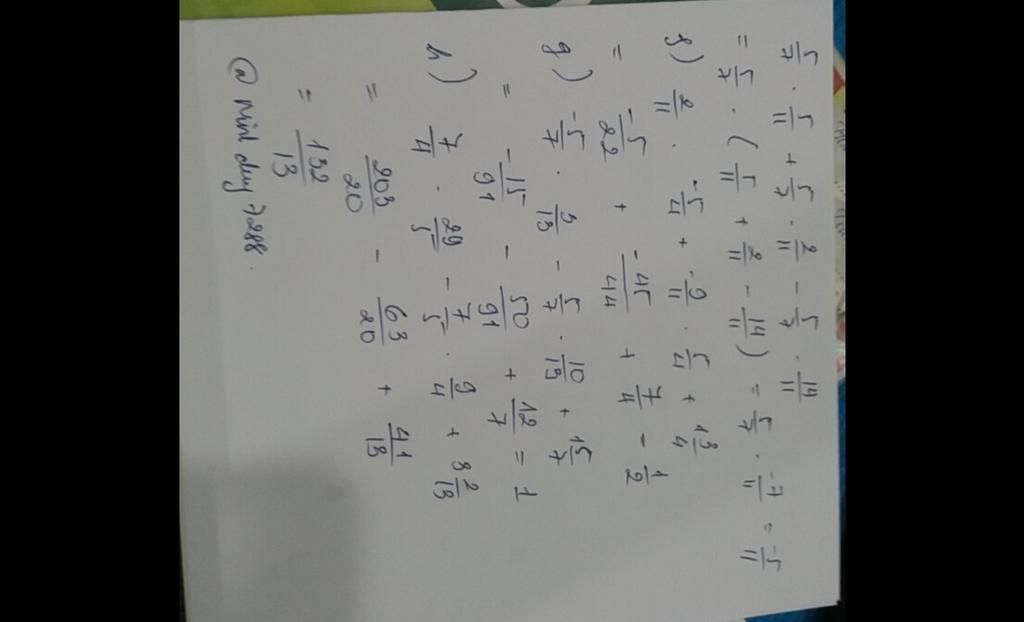 5/7 . 5/11 + 5/7 . 2/11 - 5/7 . 14/11
= 5/7 . (5/11 + 2/11 - 14/11) = 5/7 . -7/11 = -5/11
f) 2/11 . -5/4 + -9/11 . 5/4 + 1 3/4
= -5/22 + -45/44 + 7/4 - 1/2
g) -5/7 . 3/13 - 5/7 . 10/13 + 1 5/7
= -15/91 - 50/91 + 12/7 = 1
h) 7/4 . 29/5 - 7/5 . 9/4 + 3 2/13
= 203/20 - 63/20 + 41/13
= 132/13
@ Minh duy 7288.